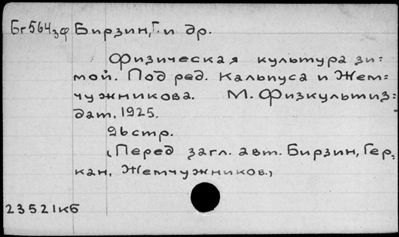 Бг564зф Бирзин, Г. и др.
Физическая культура зи-
мой. Под ред. Кальпуса и Жем-
чужникова. М. Физкультиз-
дат, 1925.
96 стр.
(Перед загл. авт. Бирзин, Гер,
кан, Жемчужников.)
23521кб